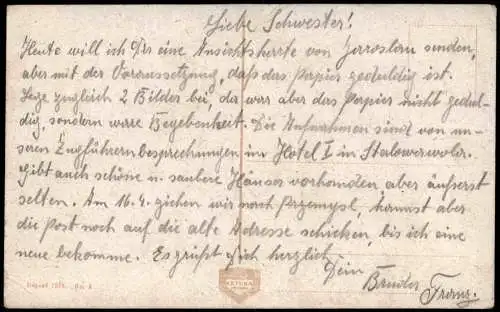 Liebe Schwester!
Heute will ich Dir eine Ansichtskarte von Jaroslau senden,
aber mit der Voraussetzung, daß das Papier geduldig ist.
Lege zugleich 2 Bilder bei, da war aber das Papier nicht geduldig,
sondern wäre Begebenheit. Die Aufnahmen sind von unseren
Zugführerbesprechungen im Hotel I in Stalowawola.
Gibt auch schöne u. saubere Häuser vorhanden aber äußerst
selten. Am 16.4. ziehen wir nach Przemysl, kannst aber
die Post noch auf die alte Adresse schicken, bis ich eine
neue bekomme. Es grüßt Dich herzlich
Dein
Bruder
Franz.